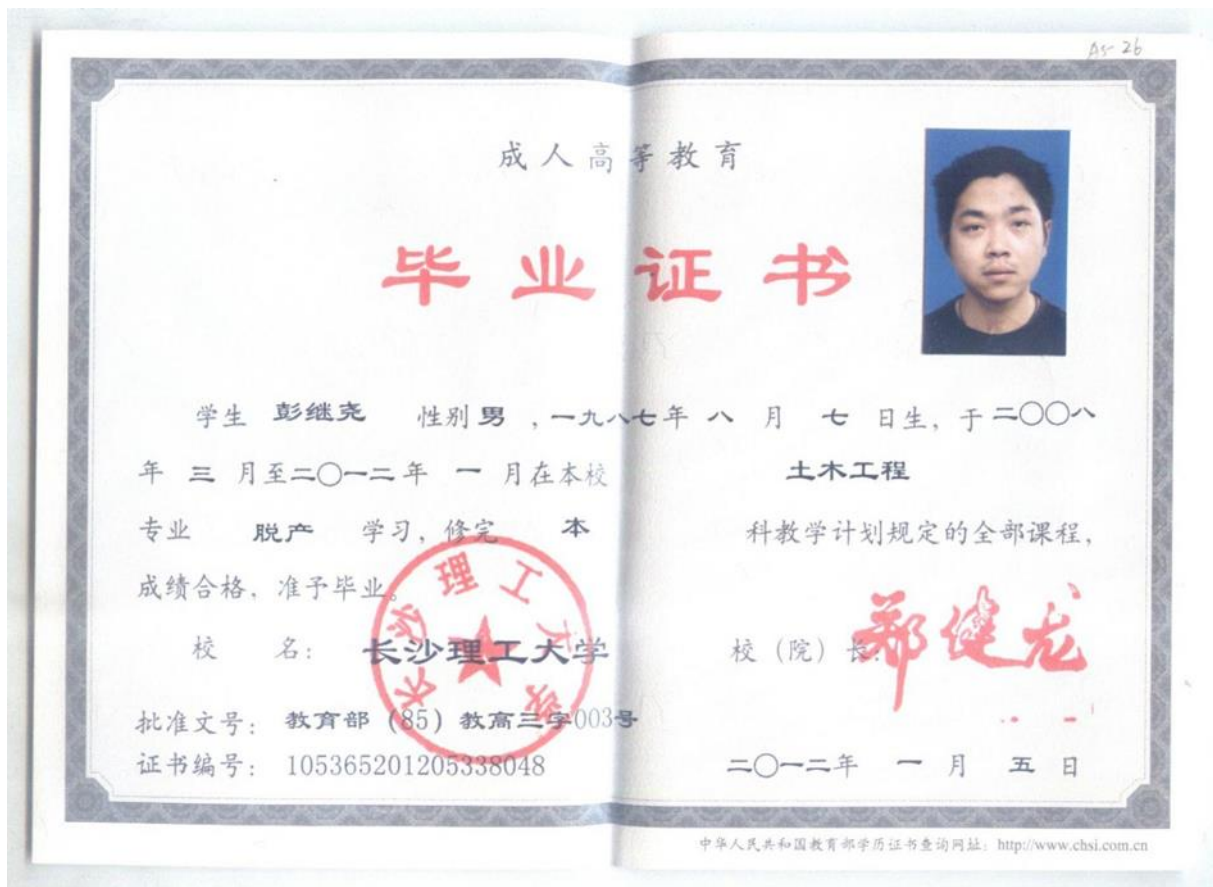 As-26
成人高等教育
毕业证书
学生 彭继尧 性别 男 ,一九八七年 八 月 七 日生, 于二〇〇八
年 三 月至二〇一二年 一 月在本校 土木工程
专业 脱产 学习, 修完 本 科教学计划规定的全部课程,
成绩合格, 准予毕业。
长沙理工大学
校 名: 长沙理工大学 校 (院) 长: 郑健龙
批准文号: 教育部 (85) 教高三字003号
证书编号: 105365201205338048 二〇一二年 一 月 五 日
中华人民共和国教育部学历证书查询网址: http://www.chsi.com.cn